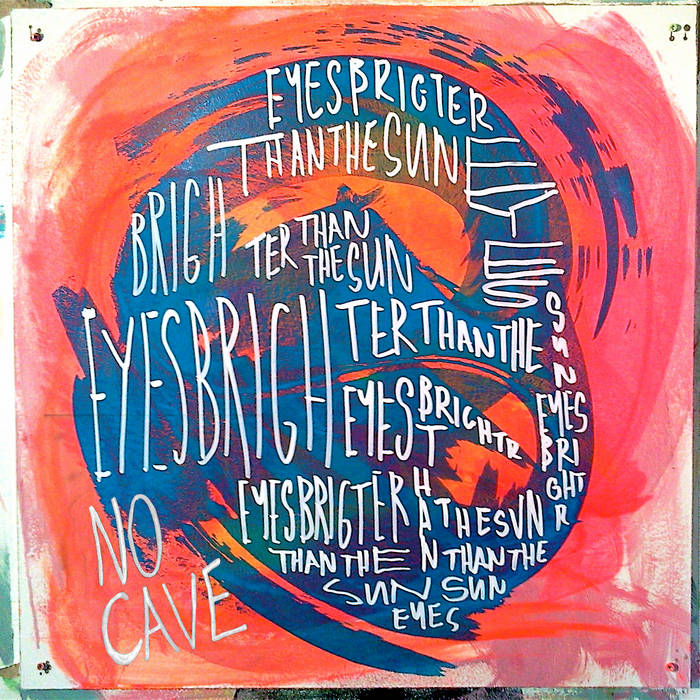 EYESBRIGTER
THANTHESUN
EYES
BRIGH
TER THAN
THE SUN
EYESBRIGH
TERTHANTHE
SUN
EYES
BRIGHTR
EYES
BRI
GHT
R
THAN
EYESBRIGTER
THESUN
THANTHE
THANTHE
SUN SUN
EYES
NO
CAVE